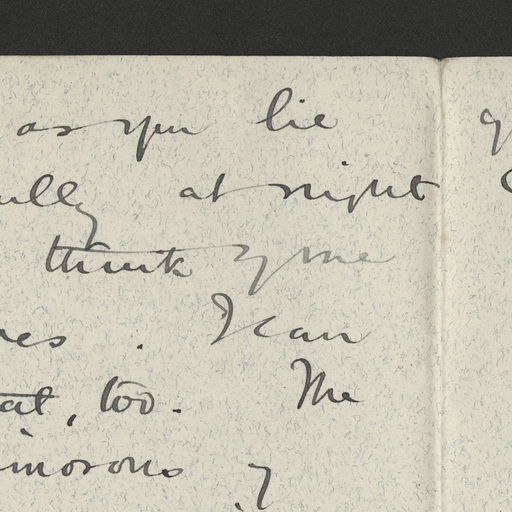 as you lie
ully at night
think of me
es. I can
at, too. The
imorous of